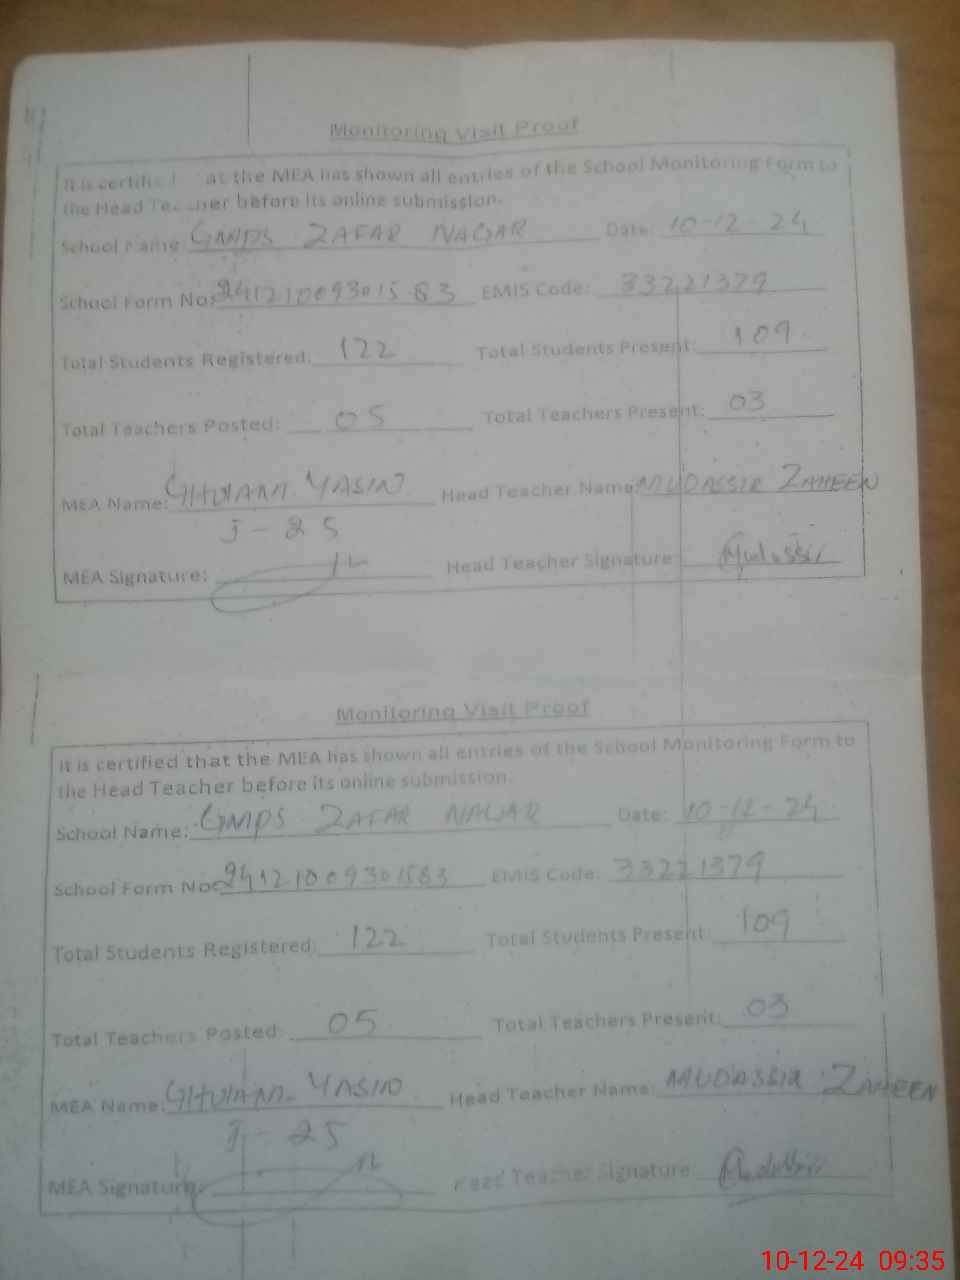 Monitoring Visit Proof
It is certified that the MEA has shown all entries of the School Monitoring Form to
the Head Teacher before its online submission.
School Name: GMPS ZAFAR NAGAR Date: 10-12-24
School Form No: 241210093015 83 EMIS Code: 33221379
Total Students Registered: 122 Total Students Present: 109
Total Teachers Posted: 05 Total Teachers Present: 03
MEA Name: GHULAM YASIN Head Teacher Name: MUDASSIR ZAHEEN
J-25
MEA Signature: Head Teacher Signature: Mudassir
Monitoring Visit Proof
It is certified that the MEA has shown all entries of the School Monitoring Form to
the Head Teacher before its online submission.
School Name: GMPS ZAFAR NAGAR Date: 10-12-24
School Form No: 24121009301583 EMIS Code: 33221379
Total Students Registered: 122 Total Students Present: 109
Total Teachers Posted: 05 Total Teachers Present: 03
MEA Name: GHULAM YASIN Head Teacher Name: MUDASSIR ZAHEEN
J-25
MEA Signature: Head Teacher Signature: Mudassir
10-12-24 09:35